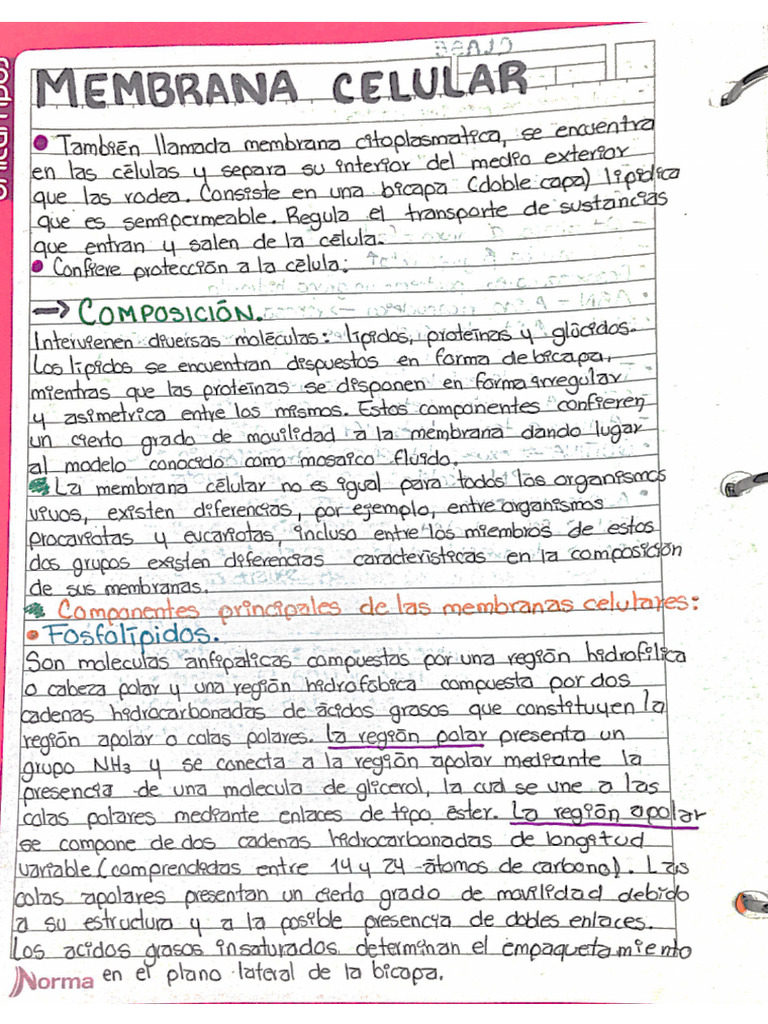 MEMBRANA CELULAR
• También llamada membrana citoplasmatica, se encuentra
en las células y separa su interior del medio exterior
que las rodea. Consiste en una bicapa (doble capa) lipídica
que es semipermeable. Regula el transporte de sustancias
que entran y salen de la célula.
• Confiere protección a la célula:
→ COMPOSICIÓN.
Intervienen diversas moléculas: lípidos, proteínas y glúcidos.
Los lípidos se encuentran dispuestos en forma de bicapa,
mientras que las proteínas se disponen en forma irregular
y asimetrica entre los mismos. Estos componentes confieren
un cierto grado de movilidad a la membrana dando lugar
al modelo conocido como mosaico fluido.
La membrana célular no es igual para todos los organismos
vivos, existen diferencias, por ejemplo, entre organismos
procariotas y eucariotas, incluso entre los miembros de estos
dos grupos existen diferencias características en la composición
de sus membranas.
Componentes principales de las membranas celulares:
• FOSFOLÍPIDOS.
Son moleculas anfipalicas compuestas por una región hidrofílica
o cabeza polar y una región hidrofóbica compuesta por dos
cadenas hidrocarbonadas de ácidos grasos que constituyen la
región apolar o colas polares. La región polar presenta un
grupo NH3 y se conecta a la región apolar mediante la
presencia de una molecula de glicerol, la cual se une a las
colas polares mediante enlaces de tipo éster. La región apolar
se compone de dos cadenas hidrocarbonadas de longitud
variable (comprendedas entre 14 y 24 átomos de carbono). Las
colas apolares presentan un cierto grado de movilidad debido
a su estructura y a la posible presencia de dobles enlaces.
Los acidos grasos insaturados determinan el empaquetamiento
en el plano lateral de la bicapa.
Norma